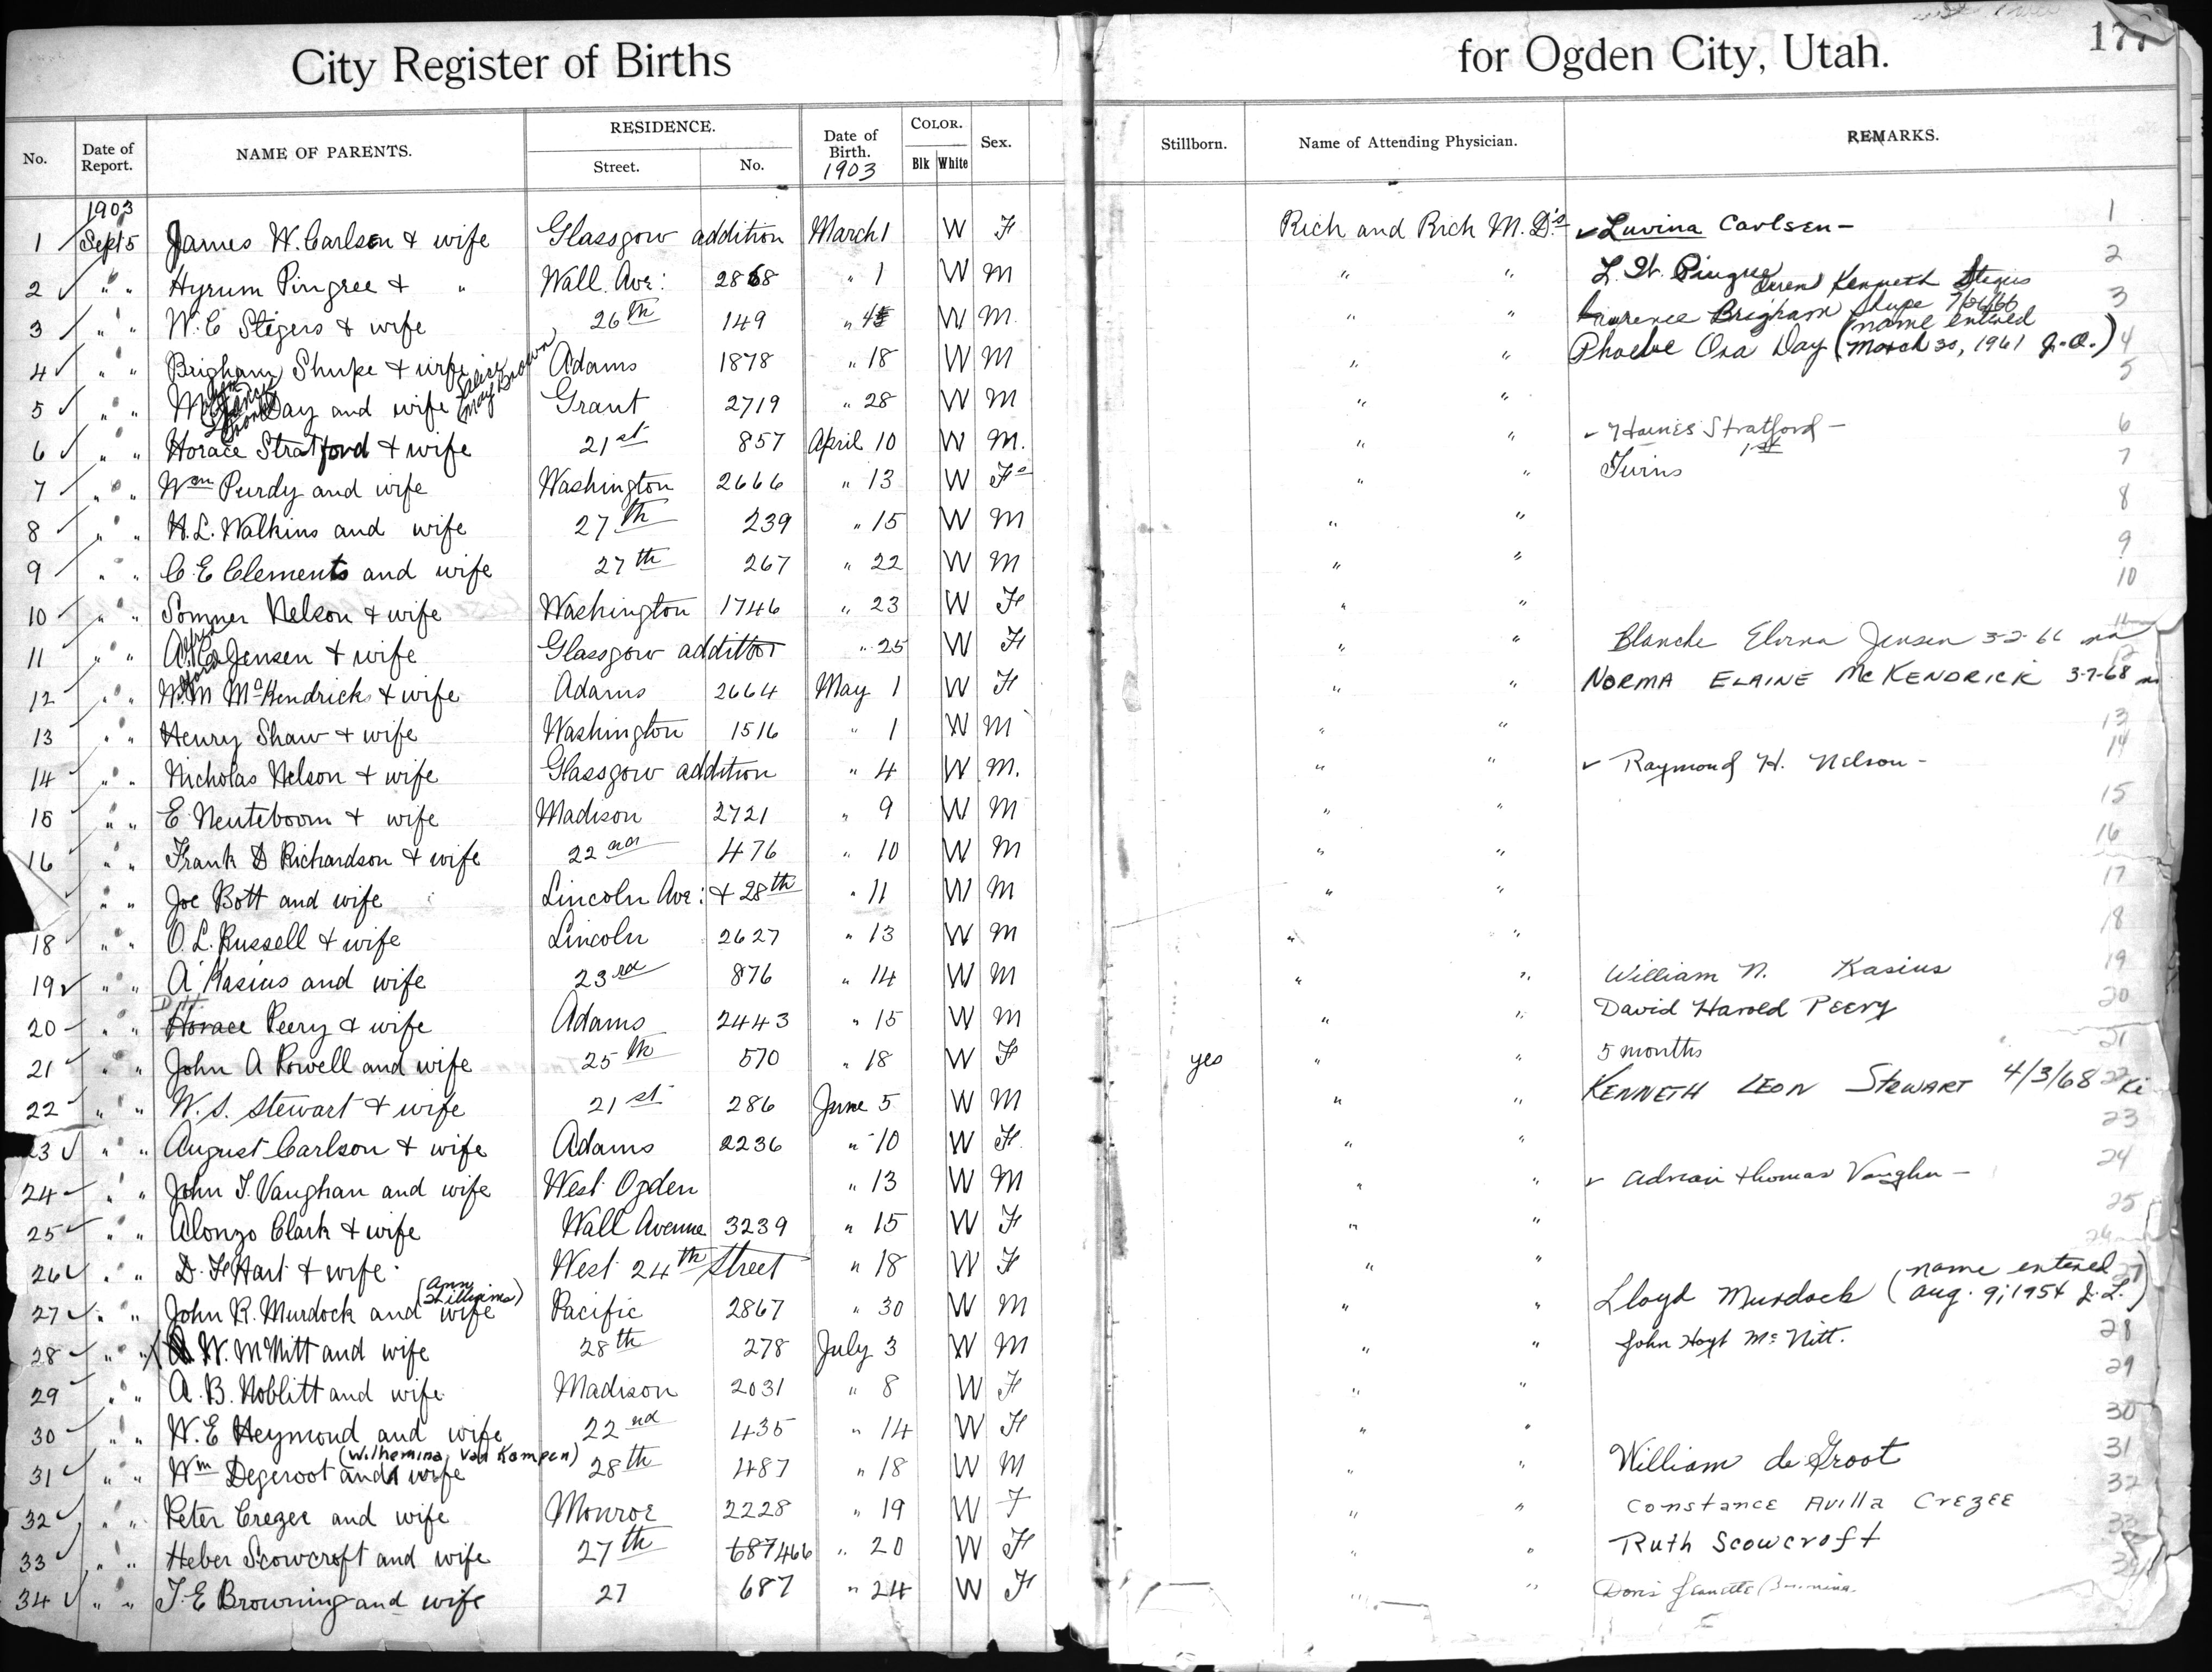 City Register of Births for Ogden City, Utah. 177
No. Date of Report. NAME OF PARENTS. RESIDENCE. Street. No. Date of Birth. 1903 COLOR. Blk White Sex. Stillborn. Name of Attending Physician. REMARKS.
1903
1 Sept 5 James W. Carlsen & wife Glassgow addition March 1 W F Rich and Rich M. D's Luvina Carlsen - 1
2 " " Hyrum Pingree & " Wall Ave: 2868 " 1 W M " " L. W. Pingree 2
Kenneth Stegers
3 " " W. C Stegers & wife 26th 149 " 4 W M " " Lawrence Brigham Shupe 7/26/66 3
4 " " Brigham Shupe & wife Adams 1878 " 18 W M " " Phoebe Ora Day (name entered March 30, 1961 J.O.) 4
5 " " Day and wife (Alice May Brown) Grant 2719 " 28 W M " " 5
6 " " Horace Stratford & wife 21st 857 April 10 W M. " " Haines Stratford - 6
7 " " Wm Purdy and wife Washington 2666 " 13 W F " " Twins 1st 7
8 " " H. L. Walkins and wife 27th 239 " 15 W M " " 8
9 " " C. E Clements and wife 27th 267 " 22 W M " " 9
10 " " Somner Nelson & wife Washington 1746 " 23 W F " " 10
11 " " Jensen & wife Glassgow addition " 25 W F " " Blanche Elvina Jensen 3-2-66 11
12 " " Wm McKendrick & wife Adams 2664 May 1 W F " " NORMA ELAINE McKENDRICK 3-7-68 12
13 " " Henry Shaw & wife Washington 1516 " 1 W M " " 13
14 " " Nicholas Nelson & wife Glassgow addition " 4 W M. " " Raymond H. Nelson - 14
15 " " E Neuteboom & wife Madison 2721 " 9 W M " " 15
16 " " Frank D Richardson & wife 22nd 476 " 10 W M " " 16
" " Joe Bott and wife Lincoln Ave: & 28th " 11 W M " " 17
18 " " O. L. Russell & wife Lincoln 2627 " 13 W M " " 18
19 " " A Kasius and wife 23rd 876 " 14 W M " " William N. Kasius 19
D.H.
20 " " Horace Peery & wife Adams 2443 " 15 W M " " David Harold Peery 20
21 " " John A Powell and wife 25th 570 " 18 W F yes " " 5 months 21
22 " " W. S. Stewart & wife 21st 286 June 5 W M " " KENNETH LEON STEWART 4/3/68 22
23 " " August Carlson & wife Adams 2236 " 10 W F. " " 23
24 " " John T. Vaughan and wife West Ogden " 13 W M " " Adrian Thomas Vaughn - 24
25 " " Alonzo Clark & wife Wall Avenue 3239 " 15 W F " " 25
26 " " D. F Hart & wife West 24th Street " 18 W F " " 26
(Ann Williams)
27 " " John R. Murdock and wife Pacific 2867 " 30 W M " " Lloyd Murdock (name entered Aug. 9, 1954 J.L.) 27
28 " " W. McNitt and wife 28th 278 July 3 W M " " John Hoyt McNitt. 28
29 " " A. B. Noblitt and wife Madison 2031 " 8 W F " " 29
30 " " W. E Heymond and wife 22nd 435 " 14 W F " " 30
(Wilhemina Van Kampen)
31 " " Wm Degeroot and wife 28th 487 " 18 W M " " William de Groot 31
32 " " Peter Crezee and wife Monroe 2228 " 19 W F " " Constance Avilla Crezee 32
33 " " Heber Scowcroft and wife 27th 687 466 " 20 W F " " Ruth Scowcroft 33
34 " " T. E Browning and wife 27 687 " 24 W F " " Doris Jeanette 34